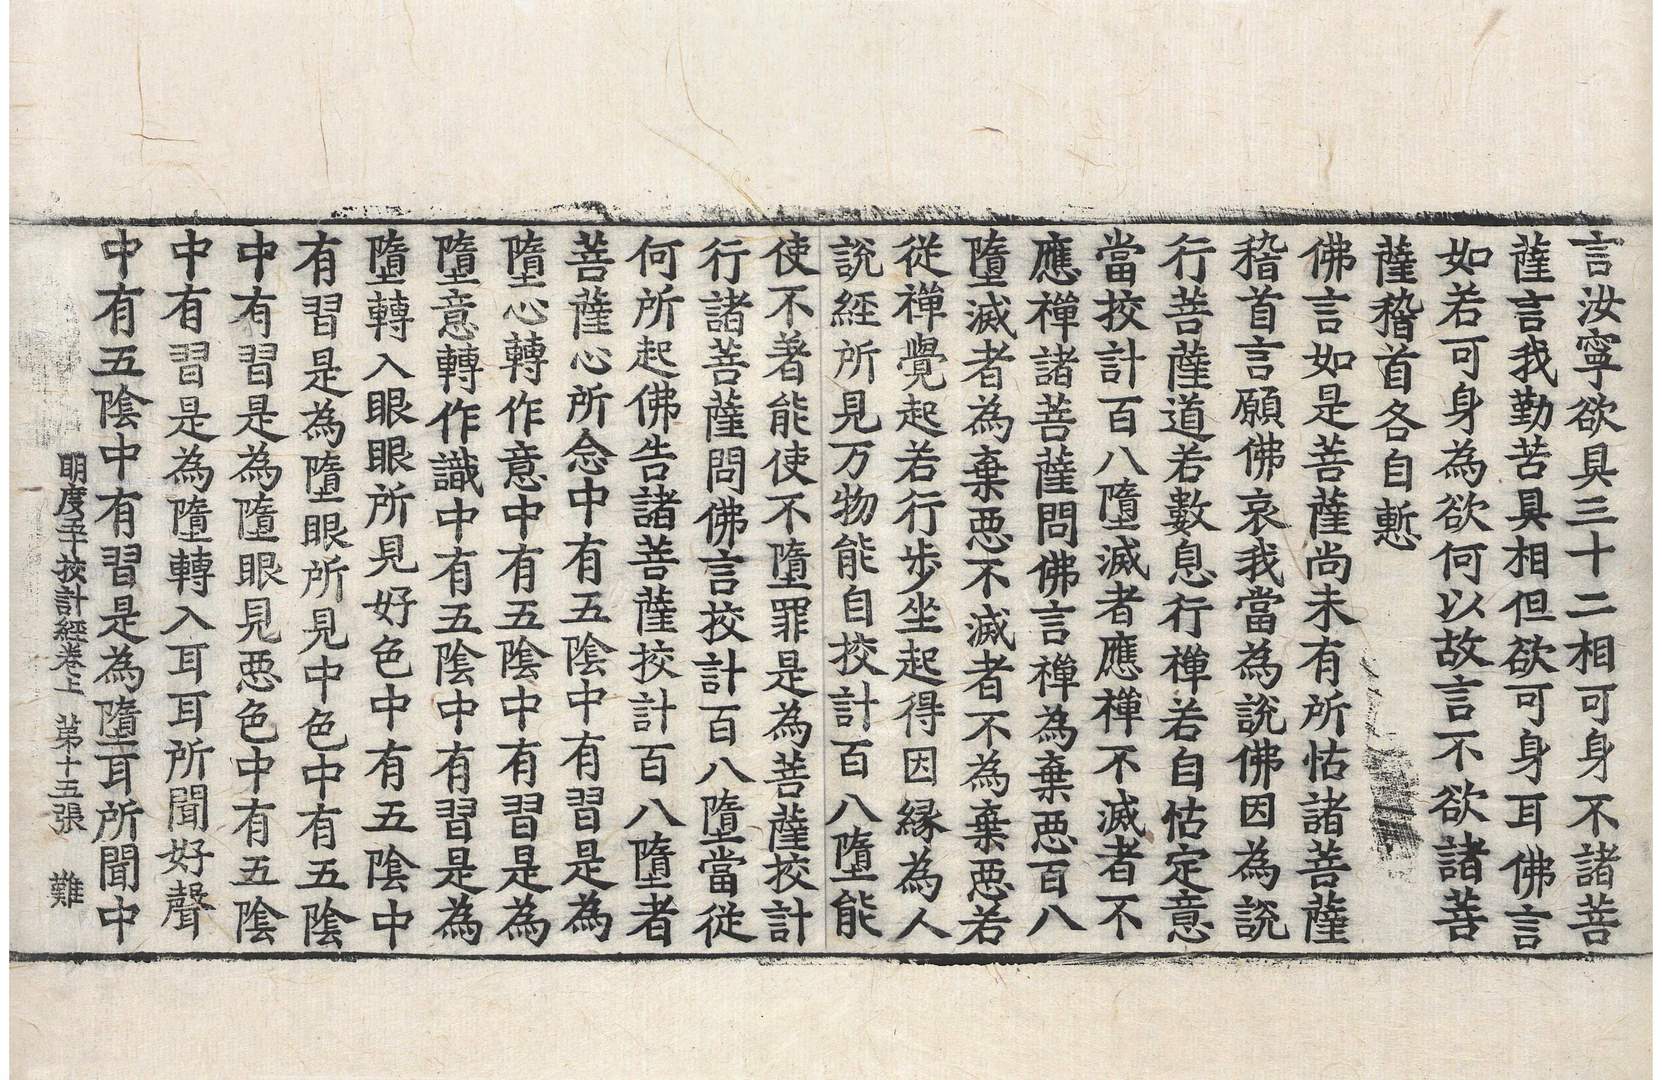 言汝寧欲具三十二相可身不諸菩
薩言我勤苦具相但欲可身耳佛言
如若可身為欲何以故言不欲諸菩
薩稽首各自慙
佛言如是菩薩尚未有所怙諸菩薩
稽首言願佛哀我當為說佛因為說
行菩薩道若數息行禪若自怙定意
當挍計百八墮滅者應禪不滅者不
應禪諸菩薩問佛言禪為棄惡百八
墮滅者為棄惡不滅者不為棄惡若
從禪覺起若行步坐起得因緣為人
說經所見万物能自挍計百八墮能
使不著能使不墮罪是為菩薩挍計
行諸菩薩問佛言挍計百八墮當從
何所起佛告諸菩薩挍計百八墮者
菩薩心所念中有五陰中有習是為
墮心轉作意中有五陰中有習是為
墮意轉作識中有五陰中有習是為
墮轉入眼眼所見好色中有五陰中
有習是為墮眼所見中色中有五陰
中有習是為墮眼見惡色中有五陰
中有習是為墮轉入耳耳所聞好聲
中有五陰中有習是為墮耳所聞中
明度五十挍計經卷上 第十五張 難